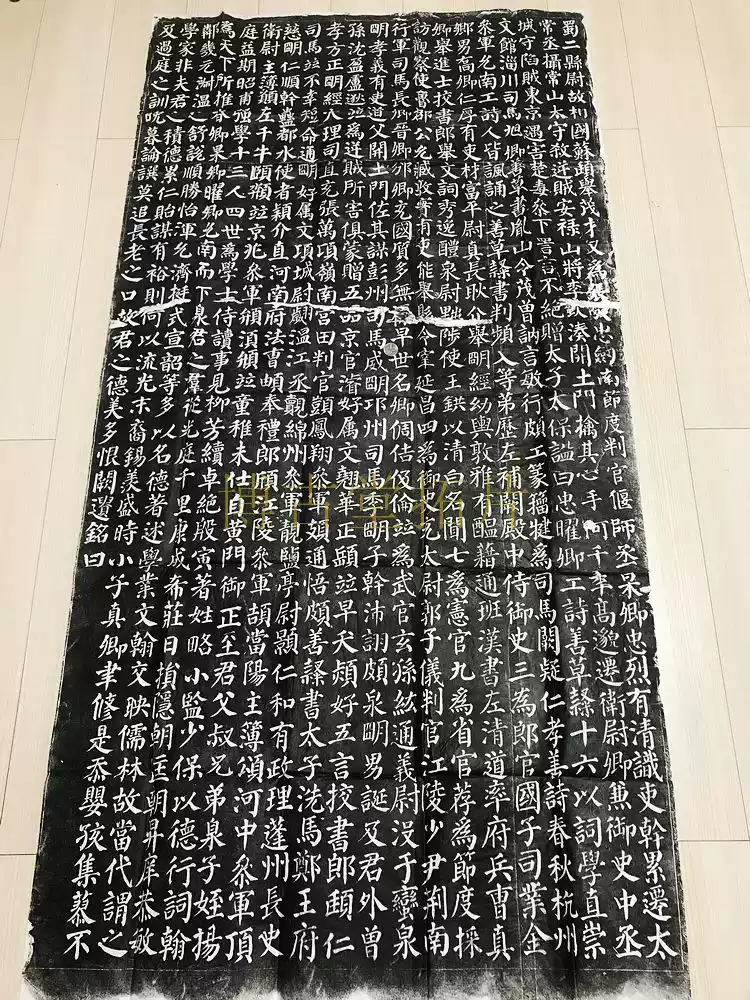 蜀二縣尉故相國蘇頲舉茂才又為張敬忠劍南節度判官偃師丞杲卿忠烈有清識吏幹累遷太
常丞攝常山太守殺逆賊安祿山將李欽湊開土門擒其心手何千年高邈遷衛尉卿兼御史中丞
城守陷賊東京遇害楚毒叅下詈言不絕贈太子太保謚曰忠曜卿工詩善草隸十六以詞學直崇
文館淄川司馬旭卿善草書胤山令茂曾訥言敏行頗工篆籀犍為司馬闕疑仁孝善詩春秋杭州
叅軍允南工詩人皆諷誦之善草隸書判頻入等第歷左補闕殿中侍御史三為郎官國子司業金
鄉男喬卿仁厚有吏材富平尉真長耿介舉明經幼輿敦雅有醞藉通班漢書左清道率府兵曹真
卿舉進士挍書郎舉文詞秀逸醴泉尉黜陟使王鉷以清白名聞七為憲官九為省官荐為節度採
訪觀察使魯郡公允臧敦實有吏能舉縣令宰延昌四為御史充太尉郭子儀判官江陵少尹荊南
行軍司馬長卿晉卿邠卿充國質多無祿早世名卿倜佶伋倫並為武官玄孫紘通義尉沒于蠻泉
明孝義有吏道父開土門佐其謀彭州司馬威明邛州司馬季明子幹沛詡頗泉明男誕及君外曾
孫沈盈盧逖並為逆賊所害俱蒙贈五品京官濬好屬文翹華正頤並早夭頍好五言挍書郎頲仁
孝方正明經大理司直充張萬頃嶺南營田判官顗鳳翔叅軍頍通悟頗善隸書太子洗馬鄭王府
司馬並不幸短命通明好屬文項城尉翽溫江丞覿綿州叅軍靚鹽亭尉顥仁和有政理蓬州長史
慈明仁順幹蠱都水使者穎介直河南府法曹頔奉禮郎頎江陵叅軍頡當陽主簿頌河中叅軍頂
衛尉主簿願左千牛頤頎並京兆叅軍須頲並童稚未仕自黃門御正至君父叔兄弟泉子姪揚
庭益期昭甫強學十三人四世為學士侍讀事見柳芳續卓絕殷寅著姓略小監少保以德行詞翰
為天下所推春卿杲卿曜卿允南而下泉君之羣從光庭千里康成希莊日損隱朝匡朝昇庠恭敏
鄰幾元淑溫之舒說順勝怡渾允濟挺式宣韶等多以名德著述學業文翰交映儒林故當代謂之
學家非夫君之積德累仁貽謀有裕則何以流光末裔錫羨盛時小子真卿聿修是忝嬰孩集蓼不
及過庭之訓晚暮論譔莫追長老之口故君之德美多恨闕遺銘曰